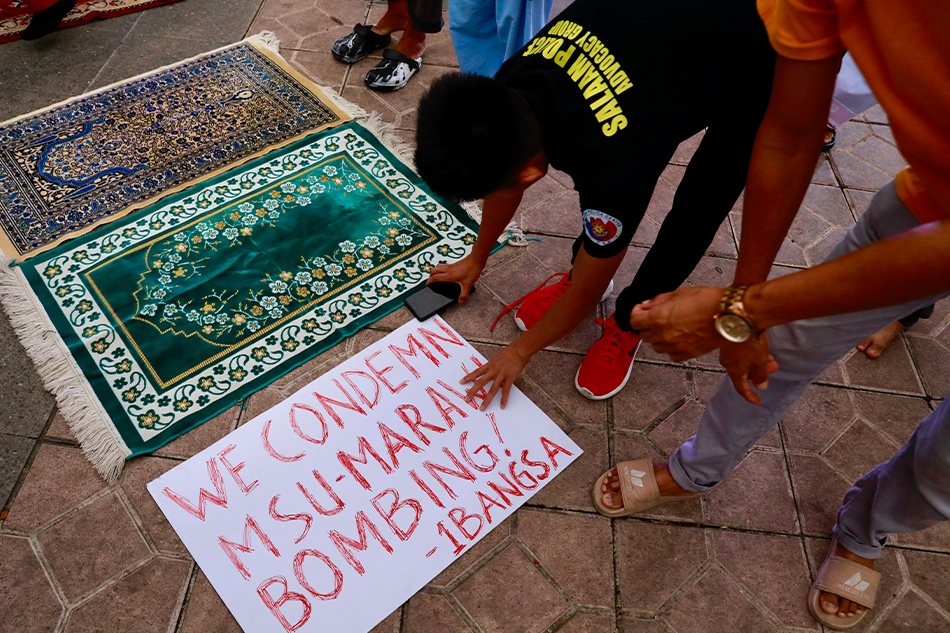 SALAAM POLICE
ADVOCACY GROUP
WE CONDEMN
MSU-MARAWI
BOMBING!
-1BANGSA